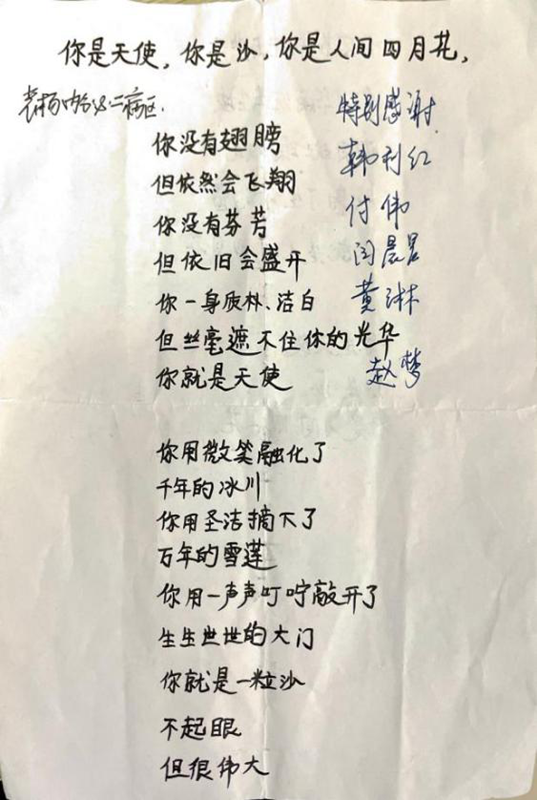 你是天使，你是沙，你是人间四月花，
二病区
特别感谢
韩利红
付伟
闫晨晨
黄淋
赵梦
你没有翅膀
但依然会飞翔
你没有芬芳
但依旧会盛开
你一身质朴、洁白
但丝毫遮不住你的光华
你就是天使
你用微笑融化了
千年的冰川
你用圣洁摘下了
万年的雪莲
你用一声声叮咛敲开了
生生世世的大门
你就是一粒沙
不起眼
但很伟大